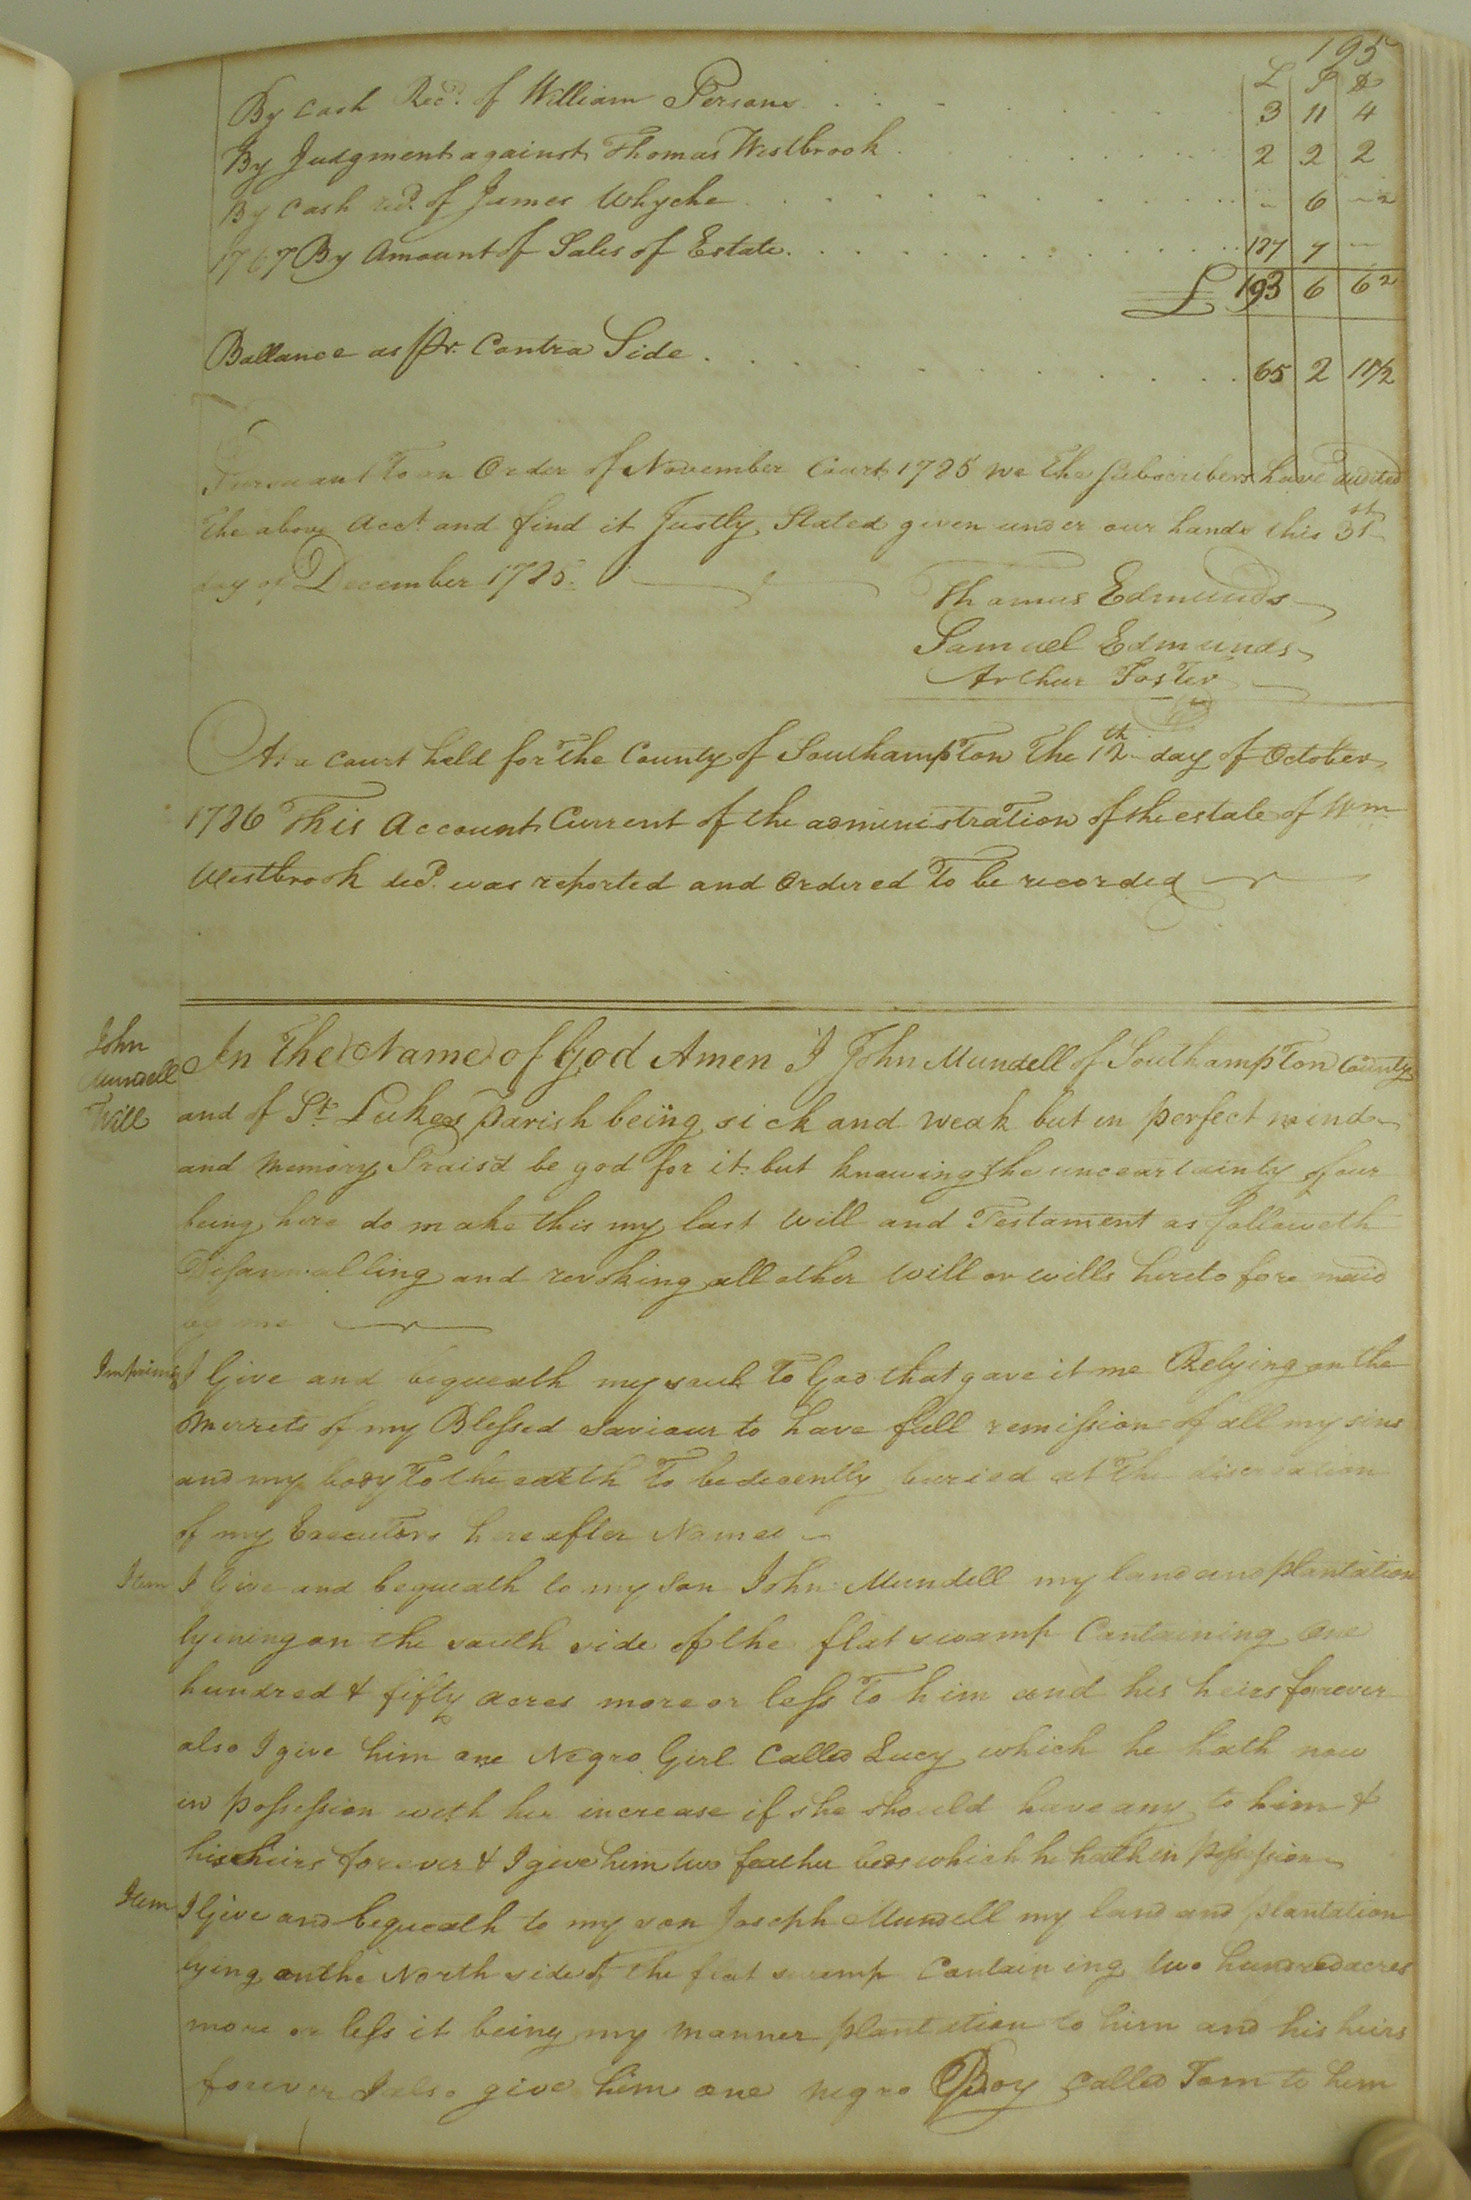 195
L S D
By Cash Rec.d of William Persons 3 11 4
By Judgment against Thomas Westbrook 2 2 2
By Cash rec.d of James Whyche 6
1767 By Amount of Sales of Estate 187 7
£ 193 6 6 2
Ballance as pr. Contra Side 65 2 11 1/2
Pursuant to an Order of November Court 1785 we the Subscribers have audited
the above Acct. and find it Justly Stated given under our hands this 31st
day of December 1785.
Thomas Edmunds
Samuel Edmunds
Arthur Foster
At a Court held for the County of Southampton the 12th day of October
1786 This Account Current of the administration of the estate of Wm
Westbrook decd. was reported and Ordered To be recorded
John
Mundell
Will
In The Name of God Amen I John Mundell of Southampton County
and of St. Lukes Parish being sick and weak but in perfect mind
and Memory Prais'd be god for it but knowing the unceartainty of our
being here do make this my last Will and Testament as followeth
Disannulling and revoking all other Will or wills hereto fore maid
by me
Imprimis I Give and bequeath my soul To God that gave it me Relying on the
Merrets of my Blessed Saviour to have full remission of all my sins
and my body To the earth To be decently buried at The discreation
of my Executors hereafter Named
Item I Give and bequeath to my Son John Mundell my land and plantation
lyening on the south side of the flat swamp Containing One
hundred & fifty acres more or less To him and his heirs forever
also I give him one Negro Girl Called Lucy which he hath now
in possession with her increase if she should have any to him &
his heirs forever & I give him two feather beds which he hath in possession
Item I Give and bequeath to my son Joseph Mundell my land and plantation
lying on the North side of the flat swamp Containing two hundred acres
more or less it being my manner plantation to him and his heirs
forever I also give him one negro Boy Called Tom to him